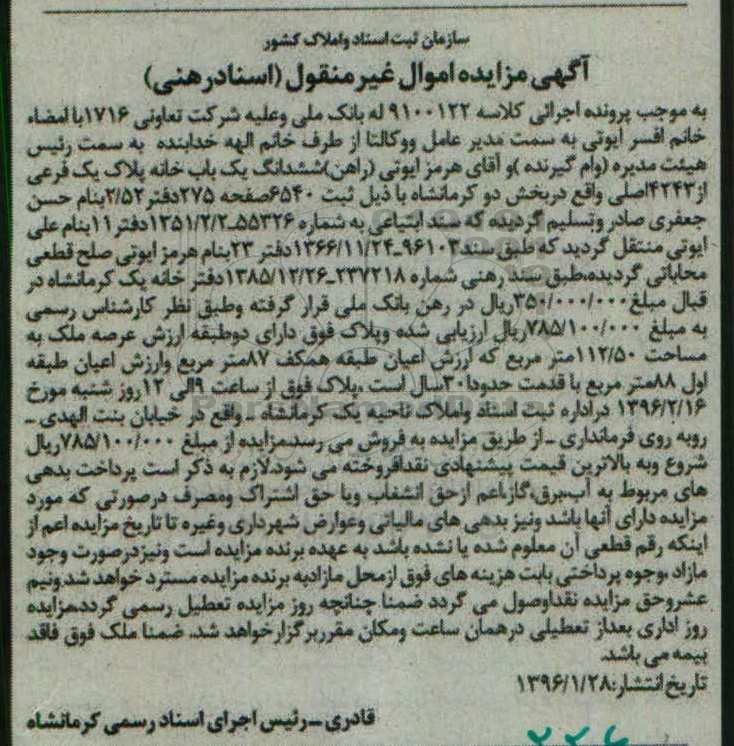 سازمان ثبت اسناد واملاک کشور
آگهی مزایده اموال غیر منقول (اسنادرهنی)
به موجب پرونده اجرائی کلاسه ۹۱۰۰۱۲۲ له بانک ملی وعلیه شرکت تعاونی ۱۷۱۶با امضاء
خانم افسر ایوتی به سمت مدیر عامل ووکالتا از طرف خانم الهه خدابنده به سمت رئیس
هیئت مدیره (وام گیرنده )و آقای هرمز ایوتی (راهن)ششدانگ یک باب خانه پلاک یک فرعی
از۴۲۴۳اصلی واقع دربخش دو کرمانشاه با ذیل ثبت ۶۵۴۰صفحه ۲۷۵دفتر۲/۵۲بنام حسن
جعفری صادر وتسلیم گردیده که سند ابتیاعی به شماره ۵۵۳۲۶-۱۳۵۱/۲/۲دفتر۱۱بنام علی
ایوتی منتقل گردید که طبق سند۹۶۱۰۳-۱۳۶۶/۱۱/۲۴دفتر ۲۳بنام هرمز ایوتی صلح قطعی
محاباتی گردیده،طبق سند رهنی شماره ۲۳۷۲۱۸-۱۳۸۵/۱۲/۲۶دفتر خانه یک کرمانشاه در
قبال مبلغ۳۵۰/۰۰۰/۰۰۰ریال در رهن بانک ملی قرار گرفته وطبق نظر کارشناس رسمی
به مبلغ ۷۸۵/۱۰۰/۰۰۰ریال ارزیابی شده وپلاک فوق دارای دوطبقه ارزش عرصه ملک به
مساحت ۱۱۲/۵۰متر مربع که ارزش اعیان طبقه همکف ۸۷متر مربع وارزش اعیان طبقه
اول ۸۸متر مربع با قدمت حدودا۳۰سال است ،پلاک فوق از ساعت ۹الی ۱۲روز شنبه مورخ
۱۳۹۶/۲/۱۶ دراداره ثبت اسناد واملاک ناحیه یک کرمانشاه - واقع در خیابان بنت الهدی -
روبه روی فرمانداری - از طریق مزایده به فروش می رسد.مزایده از مبلغ ۷۸۵/۱۰۰/۰۰۰ریال
شروع وبه بالاترین قیمت پیشنهادی نقدافروخته می شود.لازم به ذکر است پرداخت بدهی
های مربوط به آب،برق،گاز،اعم ازحق انشعاب ویا حق اشتراک ومصرف درصورتی که مورد
مزایده دارای آنها باشد ونیز بدهی های مالیاتی وعوارض شهرداری وغیره تا تاریخ مزایده اعم از
اینکه رقم قطعی آن معلوم شده یا نشده باشد به عهده برنده مزایده است ونیزدرصورت وجود
مازاد ،وجوه پرداختی بابت هزینه های فوق ازمحل مازادبه برنده مزایده مسترد خواهد شد.ونیم
عشروحق مزایده نقداوصول می گردد ضمنا چنانچه روز مزایده تعطیل رسمی گردد،مزایده
روز اداری بعداز تعطیلی درهمان ساعت ومکان مقرربرگزارخواهد شد. ضمنا ملک فوق فاقد
بیمه می باشد.
تاریخ انتشار:۱۳۹۶/۱/۲۸
قادری - رئیس اجرای اسناد رسمی کرمانشاه